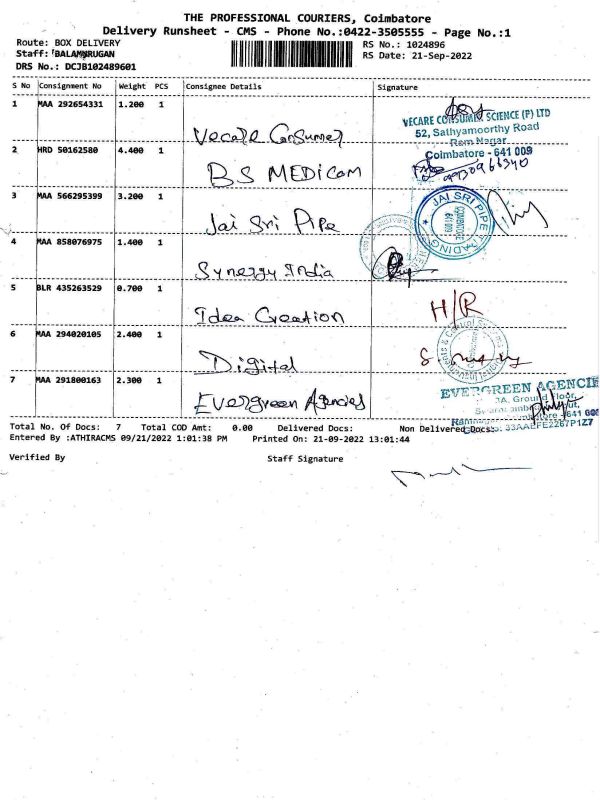 THE PROFESSIONAL COURIERS, Coimbatore
Delivery Runsheet - CMS - Phone No.:0422-3505555 - Page No.:1
Route: BOX DELIVERY
RS No.: 1024896
Staff: BALAMURUGAN
RS Date: 21-Sep-2022
DRS No.: DCJB102489601
S No Consignment No Weight PCS Consignee Details Signature
1 MAA 292654331 1.200 1
Vecare Consumer
VECARE CONSUMER SCIENCE (P) LTD
52, Sathyamoorthy Road
Ram Nagar
Coimbatore - 641 009
2 HRD 50162580 4.400 1
BS MEDICOM
3 MAA 566295399 3.200 1
Jai Sri Pipe
JAI SRI PIPE TRADING
COIMBATORE
641 009
4 MAA 858076975 1.400 1
Synergy India
5 BLR 435263529 0.700 1
Idea Creation
H/R
6 MAA 294020105 2.400 1
Digital
7 MAA 291800163 2.300 1
Evergreen Agencies
EVERGREEN AGENCIE
Ground Floor,
Total No. Of Docs: 7 Total COD Amt: 0.00 Delivered Docs: Non Delivered Docs:
33AAEFE2267P1Z7
Entered By :ATHIRACMS 09/21/2022 1:01:38 PM Printed On: 21-09-2022 13:01:44
Verified By Staff Signature